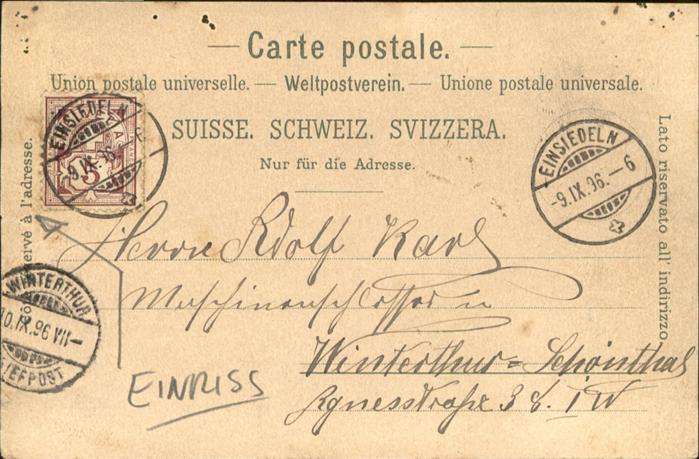 — Carte postale. —
Union postale universelle. — Weltpostverein. — Unione postale universale.
SUISSE. SCHWEIZ. SVIZZERA.
Nur für die Adresse.
EINSIEDELN
-9.IX.
5
EINSIEDELN
-9.IX.96.-6
Lato riservato all' indirizzo.
à l'adresse.
WINTERTHUR
10.IX.96 VII-
BRIEFPOST
Herrn Adolf Karl
Maschinenschlosser in
Winterthur-Schönthal
Agnesstraße 38. i W
EINRISS